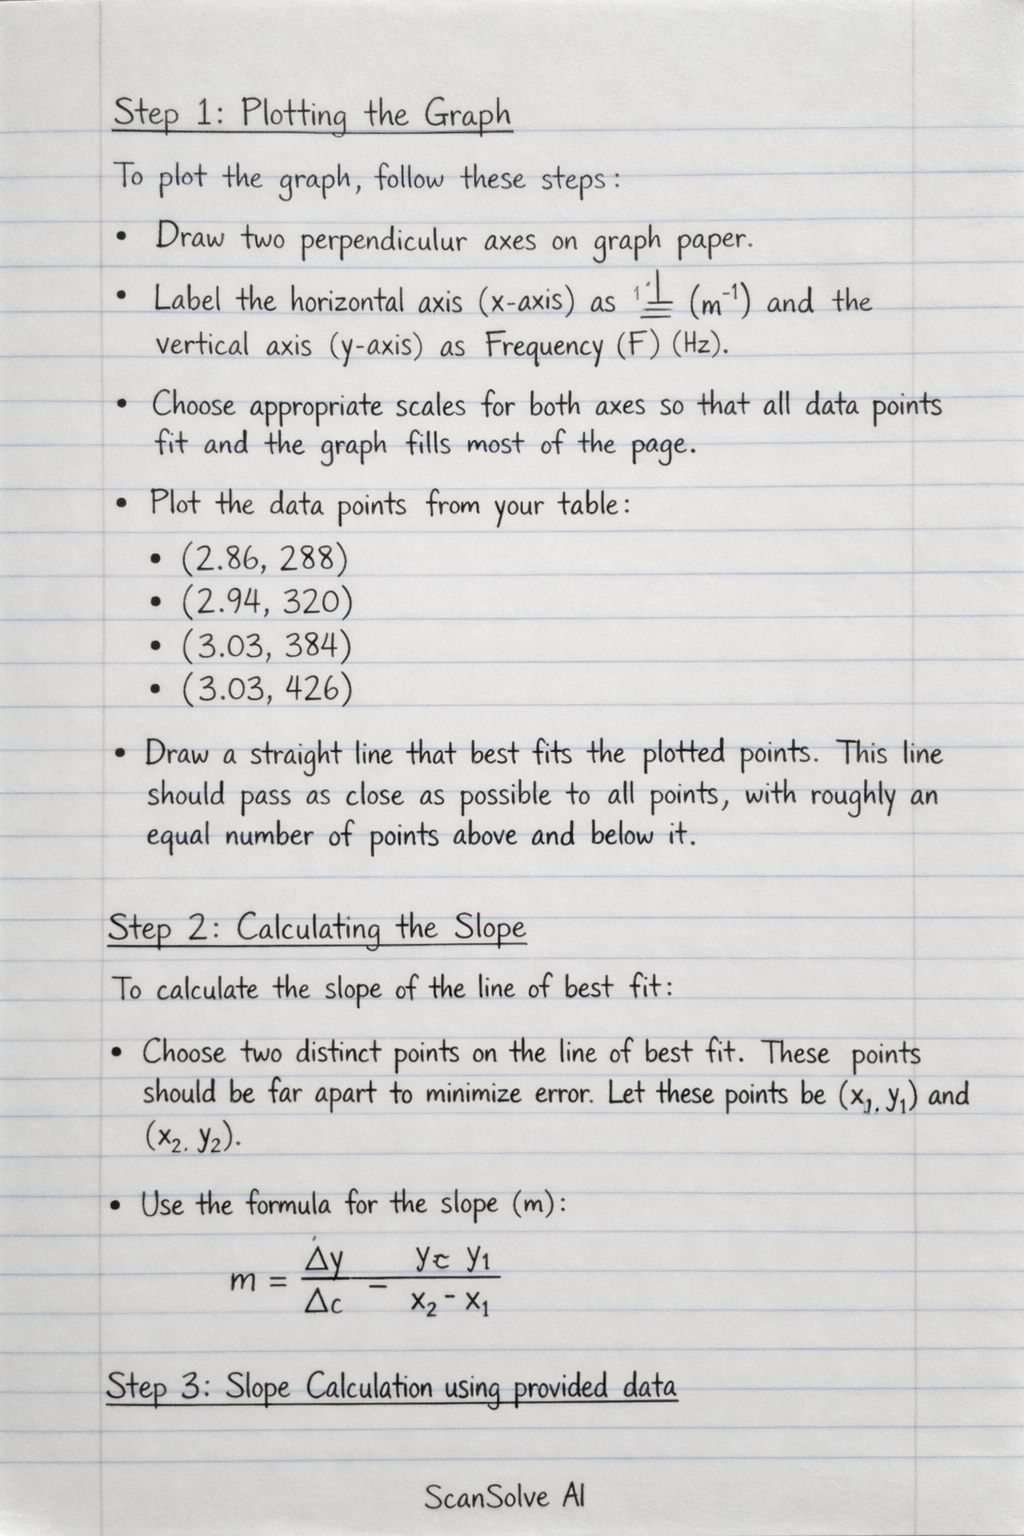 Step 1: Plotting the Graph
To plot the graph, follow these steps:
• Draw two perpendiculur axes on graph paper.
• Label the horizontal axis (x-axis) as (m⁻¹) and the
vertical axis (y-axis) as Frequency (F) (Hz).
• Choose appropriate scales for both axes so that all data points
fit and the graph fills most of the page.
• Plot the data points from your table:
• (2.86, 288)
• (2.94, 320)
• (3.03, 384)
• (3.03, 426)
• Draw a straight line that best fits the plotted points. This line
should pass as close as possible to all points, with roughly an
equal number of points above and below it.
Step 2: Calculating the Slope
To calculate the slope of the line of best fit:
• Choose two distinct points on the line of best fit. These points
should be far apart to minimize error. Let these points be (x₁, y₁) and
(x₂. y₂).
• Use the formula for the slope (m):
Δy yc y₁
m = — –
Δc x₂ - x₁
Step 3: Slope Calculation using provided data
ScanSolve AI